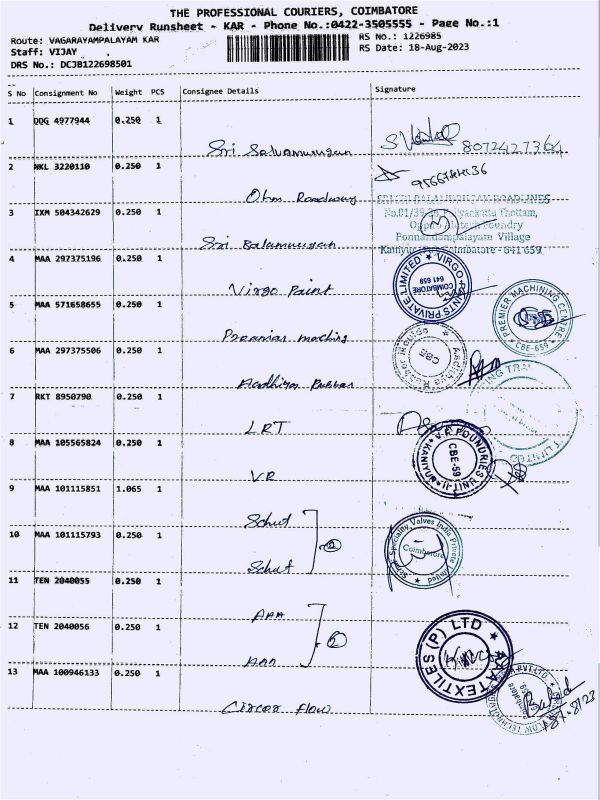 THE PROFESSIONAL COURIERS, COIMBATORE
Delivery Runsheet - KAR - Phone No.:0422-3505555 - Page No.:1
Route: VAGARAYAMPALAYAM KAR
Staff: VIJAY
DRS No.: DCJB122698501
RS No.: 1226985
RS Date: 18-Aug-2023
S No Consignment No Weight PCS Consignee Details Signature
1 DDG 4977944 0.250 1
Sri Balamurugan 8072427364
2 NKL 3220110 0.250 1
Ohm Roadways
3 IXM 504342629 0.250 1
Sri Balamurugan
SRI BALAMURUGAN ROADLINES
Ponnandampalayam Village
Coimbatore - 641 659
4 MAA 297375196 0.250 1
Virgo Paint
VIRGO PAINTS PRIVATE LIMITED
COIMBATORE
641 659
5 MAA 571658655 0.250 1
Premier maching
PREMIER MACHINING CENTRE
CBE-659
6 MAA 297375506 0.250 1
Aadhiya Rubber
CBE
7 RKT 8950790 0.250 1
LRT
8 MAA 105565824 0.250 1
VR
V.R. FOUNDRIES UNIT-II
CBE-59
9 MAA 101115851 1.065 1
Schuf
10 MAA 101115793 0.250 1
Schuf
2
Schuf Specialty Valves India Private Limited
Coimbatore
11 TEN 2040055 0.250 1
AAA
12 TEN 2040056 0.250 1
AAA
2
TEXTILES (P) LTD
13 MAA 100946133 0.250 1
Circor Flow